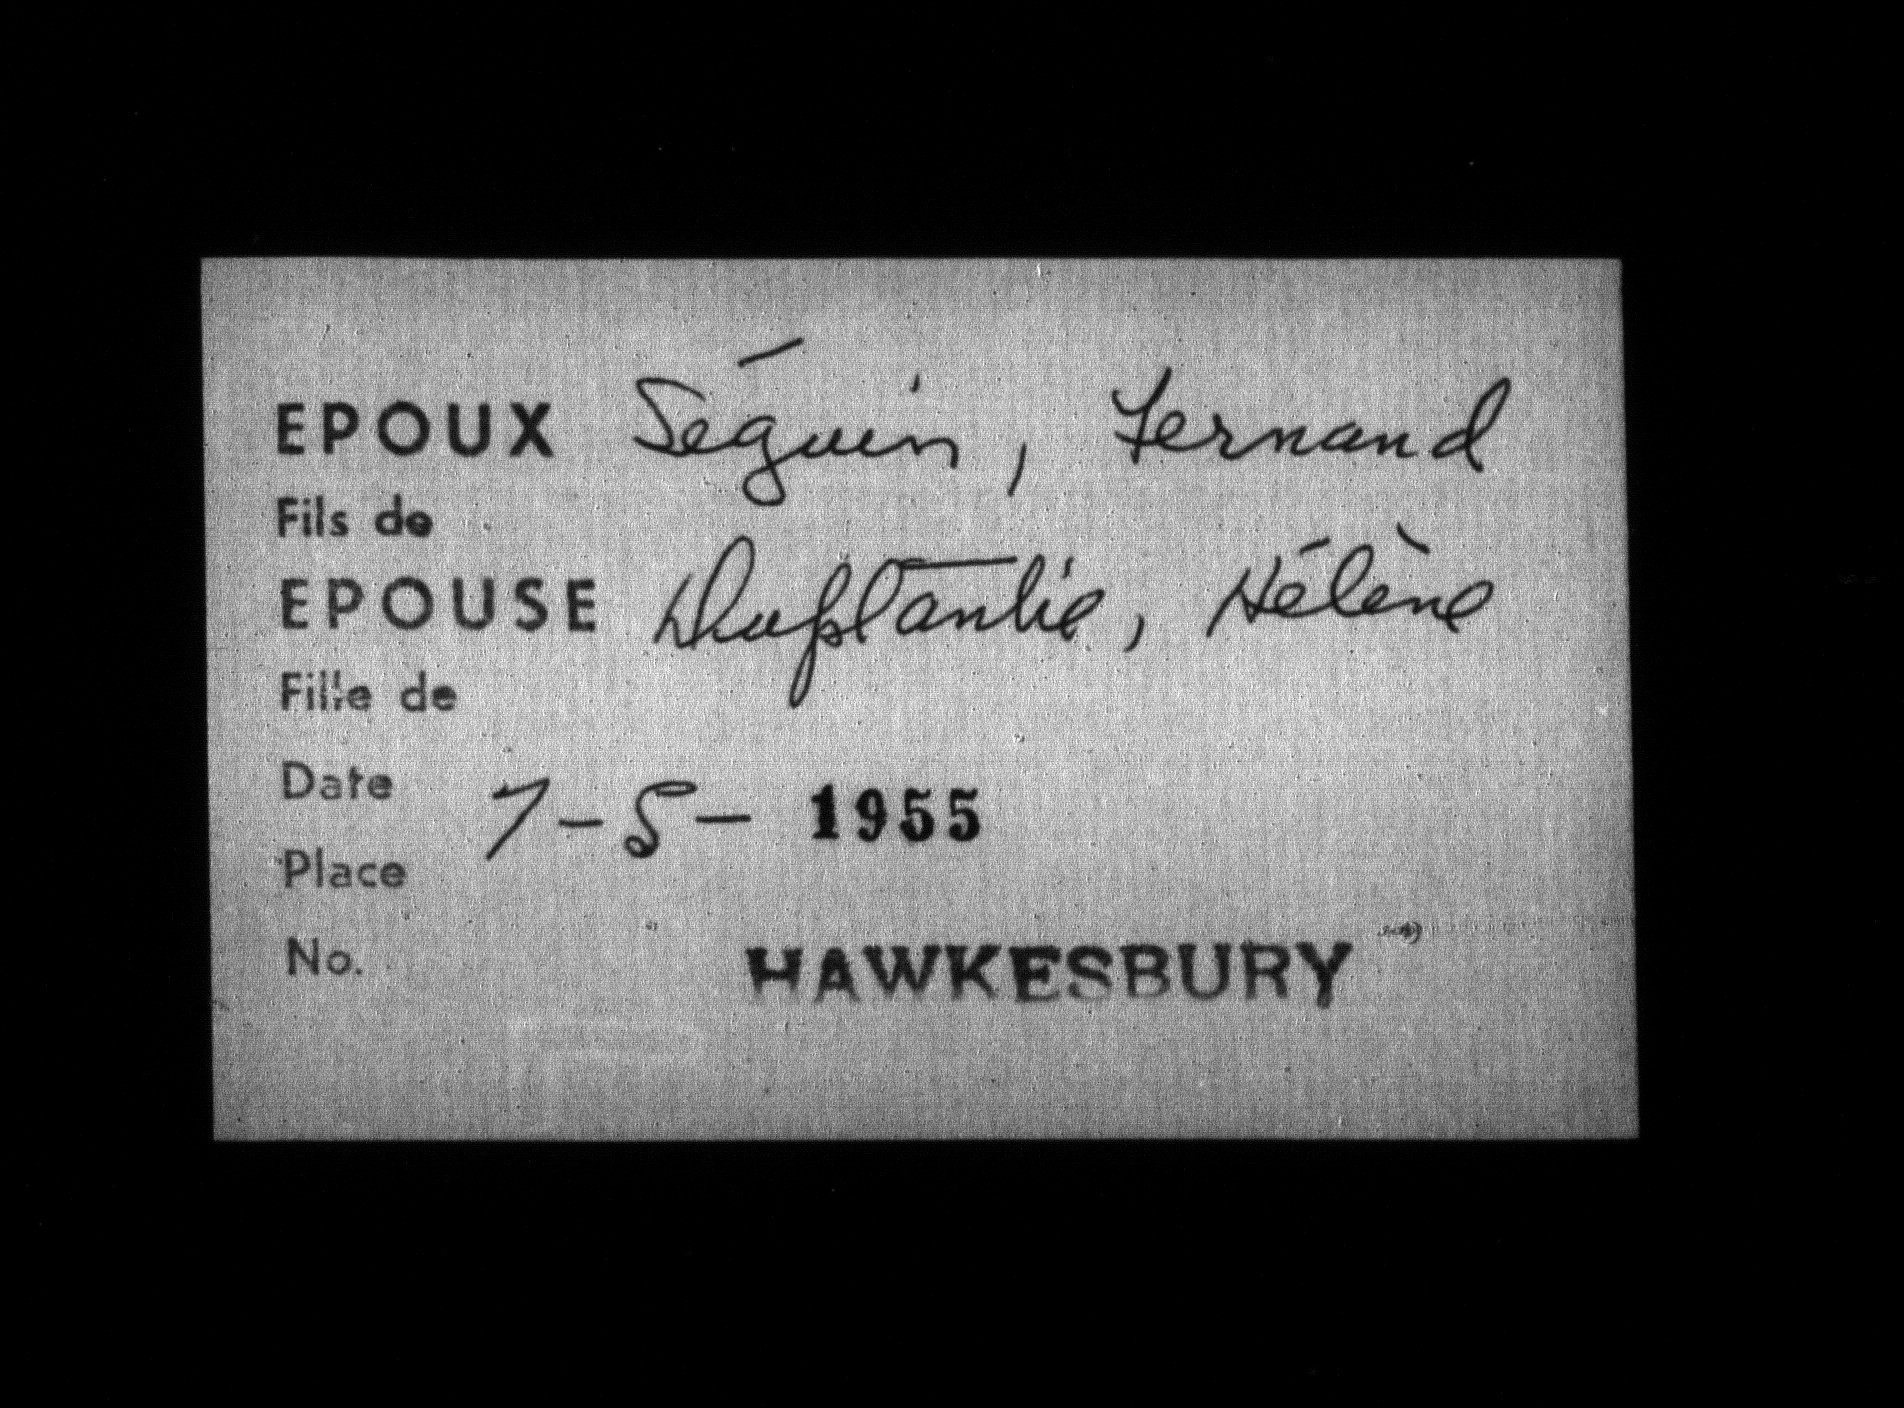 EPOUX Séguin, Fernand
Fils de
EPOUSE Duplantie, Hélène
Fille de
Date 7-5-1955
Place
No. HAWKESBURY